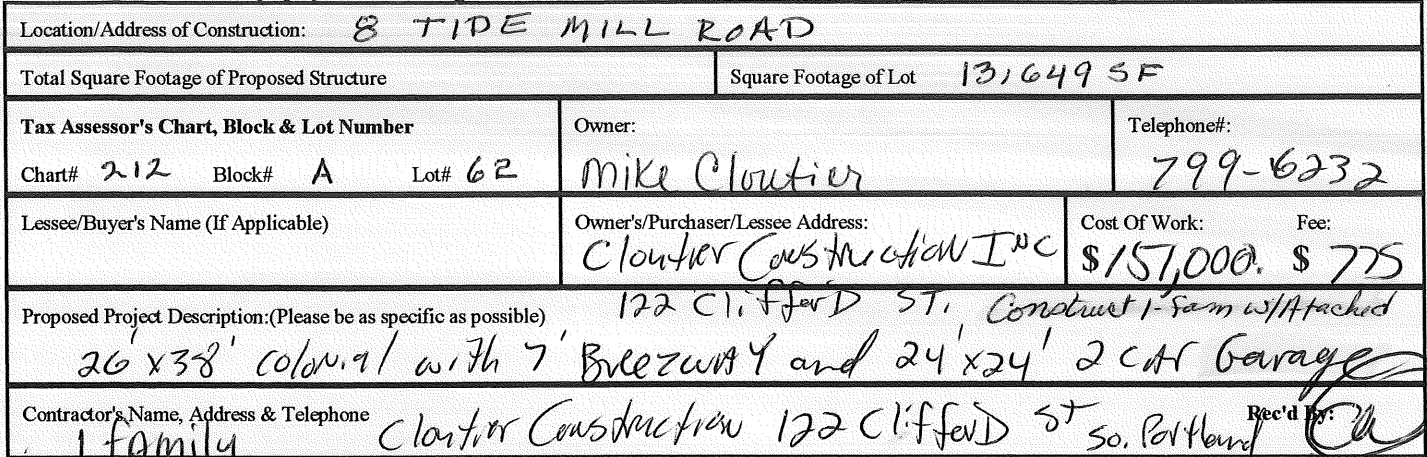 Location/Address of Construction: 8 TIDE MILL ROAD
Total Square Footage of Proposed Structure Square Footage of Lot 13,649 SF
Tax Assessor's Chart, Block & Lot Number Owner: Telephone#:
Chart# 212 Block# A Lot# 62 Mike Cloutier 799-6232
Lessee/Buyer's Name (If Applicable) Owner's/Purchaser/Lessee Address: Cost Of Work: Fee:
Cloutier Construction INC $157,000. $ 775
122 CliffорD ST. Construct 1-fam w/Attached
Proposed Project Description:(Please be as specific as possible)
26'x38' colonial with 7' BreezwAY and 24'x24' 2 CAr Garage
Contractor's Name, Address & Telephone Cloutier Construction 122 ClifforD St So. Portland Rec'd By:
1 fAMily